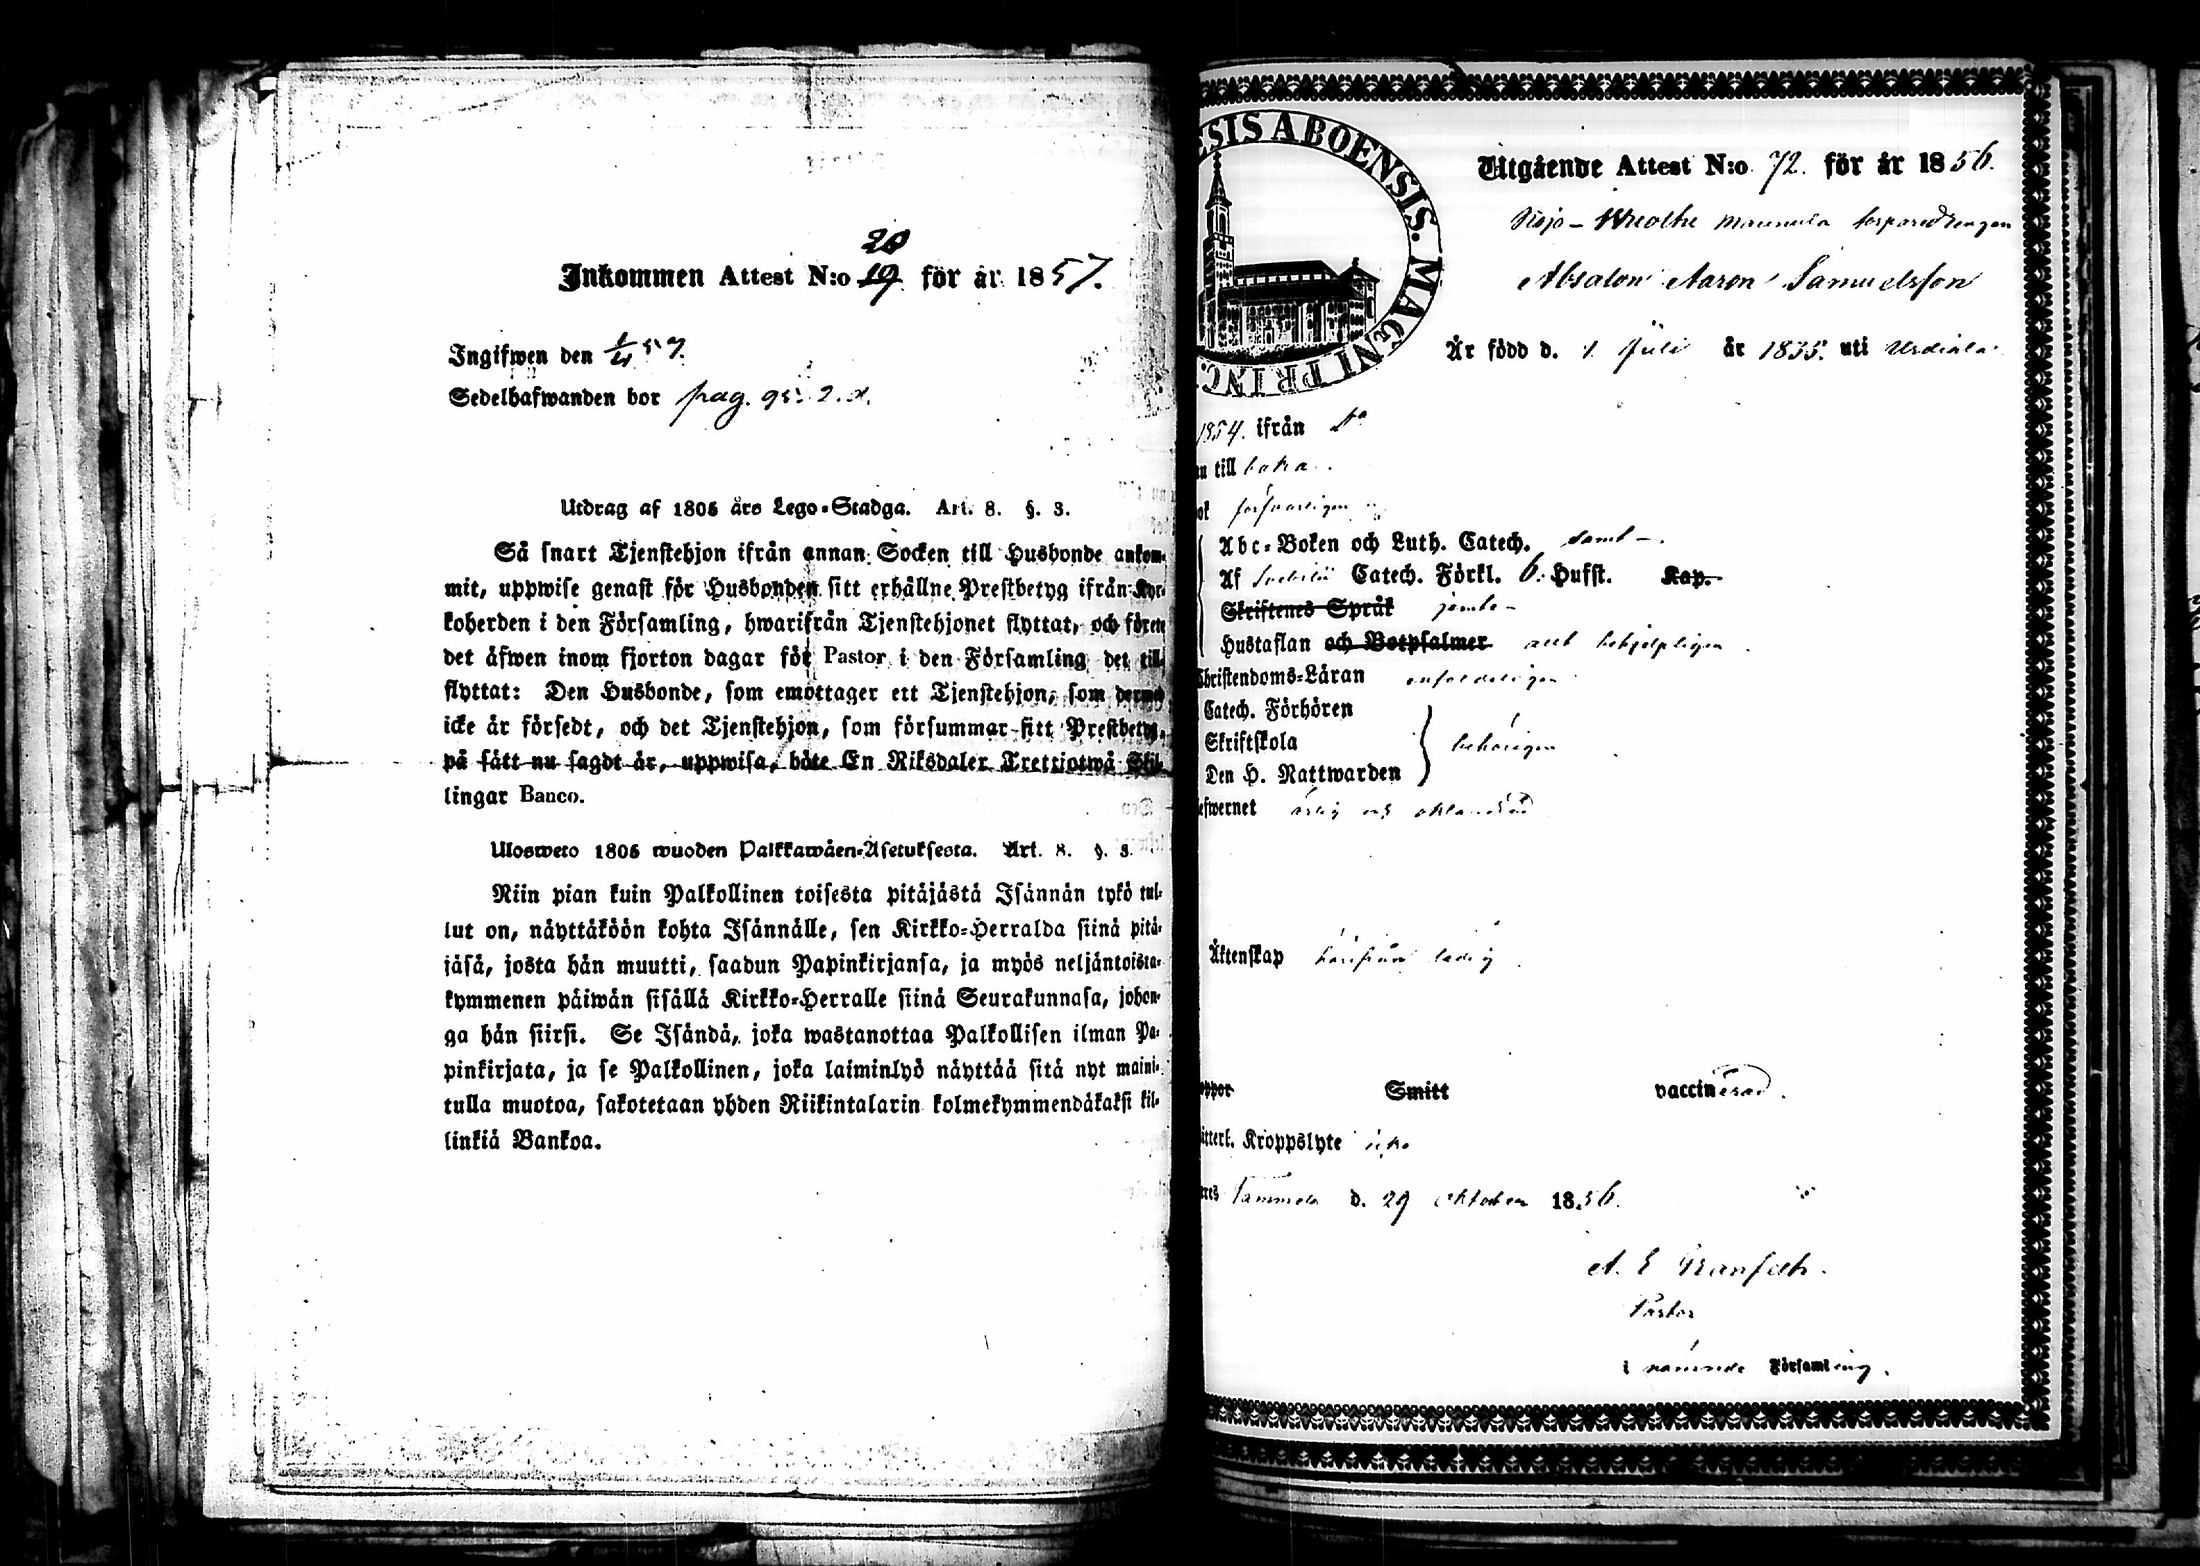 Inkommen Attest N:o 19 20 för år 1857.
Ingifwen den 1/4 57.
Sedelhafwanden bor pag. 95. 2. d.
Utdrag af 1805 års Lego-Stadga. Art. 8. §. 3.
Så snart Tjenstehjon ifrån annan Socken till Husbonde ankom-
mit, uppwise genast för Husbonden sitt erhållne Prestbetyg ifrån Kyr-
koherden i den Församling, hwarifrån Tjenstehjonet flyttat, och förete
det äfwen inom fjorton dagar för Pastor i den Församling det till-
flyttat: Den Husbonde, som emottager ett Tjenstehjon, som dermed
icke är försedt, och det Tjenstehjon, som försummar sitt Prestbetyg,
på sätt nu sagdt är, uppwisa, böte En Riksdaler Trettiotwå Skil-
lingar Banco.
Ulosweto 1805 wuoden Palkkawäen-Asetuksesta. Art. 8. §. 3.
Niin pian kuin Palkollinen toisesta pitäjästä Isännän tykö tul-
lut on, näyttäköön kohta Isännälle, sen Kirkko-Herralda siinä pitä-
jäsä, josta hän muutti, saadun Papinkirjansa, ja myös neljäntoista-
kymmenen päiwän sisällä Kirkko-Herralle siinä Seurakunnasa, johon-
ga hän siirsi. Se Isändä, joka wastanottaa Palkollisen ilman Pa-
pinkirjata, ja se Palkollinen, joka laiminlyö näyttää sitä nyt maini-
tulla muotoa, sakotetaan yhden Riikintalarin kolmekymmendäkaksi kil-
linkiä Bankoa.
ESIS ABOENSIS. MAGNI PRINC.
Utgående Attest N:o 72. för år 1856.
Absalon Aaron Samuelsson
Är född d. 1 Juli år 1835. uti Urdiala
1854. ifrån
till
försvarligen
Abc-Boken och Luth. Catech. samt
Af Svebilii Catech. Förkl. 6. Hufst. Kap.
Skriftenes Språk jemte
Hustaflan och Botpsalmer allt behjelpligen
Christendoms-Läran enfaldeligen
Catech. Förhören
Skriftskola
behörigen
Den H. Nattwarden
efwernet ärlig och oklandrad
Äktenskap härifrån ledig
Smitt vaccinerad.
Kroppslyte icke
Tammela d. 29 Oktober 1856.
A. E Granfelt.
Pastor
i nämnde Församling.